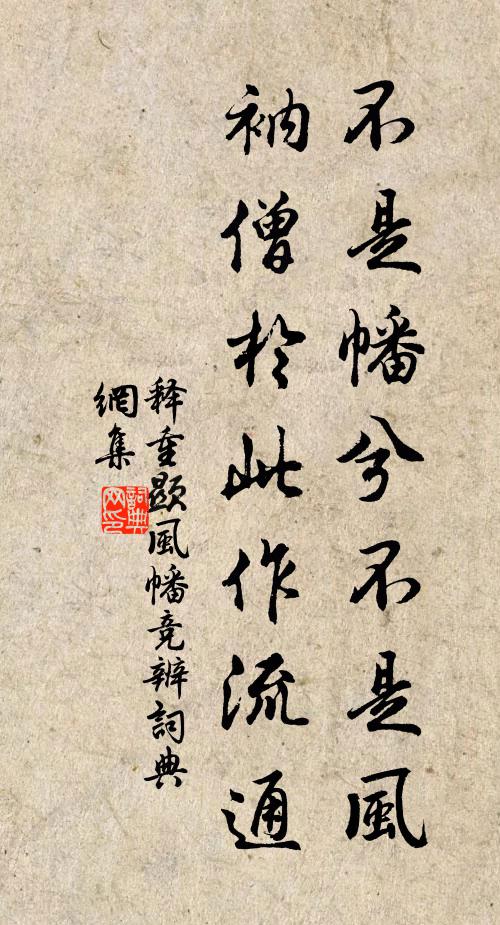 不是幡兮不是風
衲僧於此作流通
释重顯風幡竞辨詞典
網集
詞典
网印